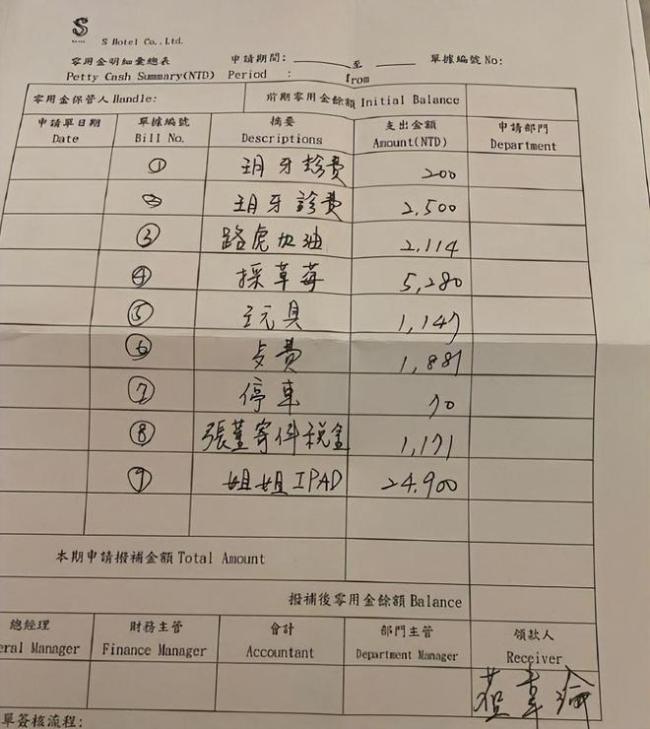 S
S Hotel Co., Ltd.
零用金明細彙總表 申請期間: 至 單據編號 No:
Petty Cash Summary(NTD) Period : from
零用金保管人 Handle: 前期零用金餘額 Initial Balance
申請單日期 單據編號 摘要 支出金額 申請部門
Date Bill No. Descriptions Amount(NTD) Department
① 玥牙診費 200
② 玥牙診費 2,500
③ 路虎加油 2,114
④ 採草莓 5,280
⑤ 玩具 1,147
⑥ 費 1,881
⑦ 停車 70
⑧ 張董寄件稅金 1,171
⑨ 姐姐IPAD 24,900
本期申請撥補金額 Total Amount
撥補後零用金餘額 Balance
總經理 財務主管 會計 部門主管 領款人
eral Manager Finance Manager Accountant Department Manager Receiver
單簽核流程: